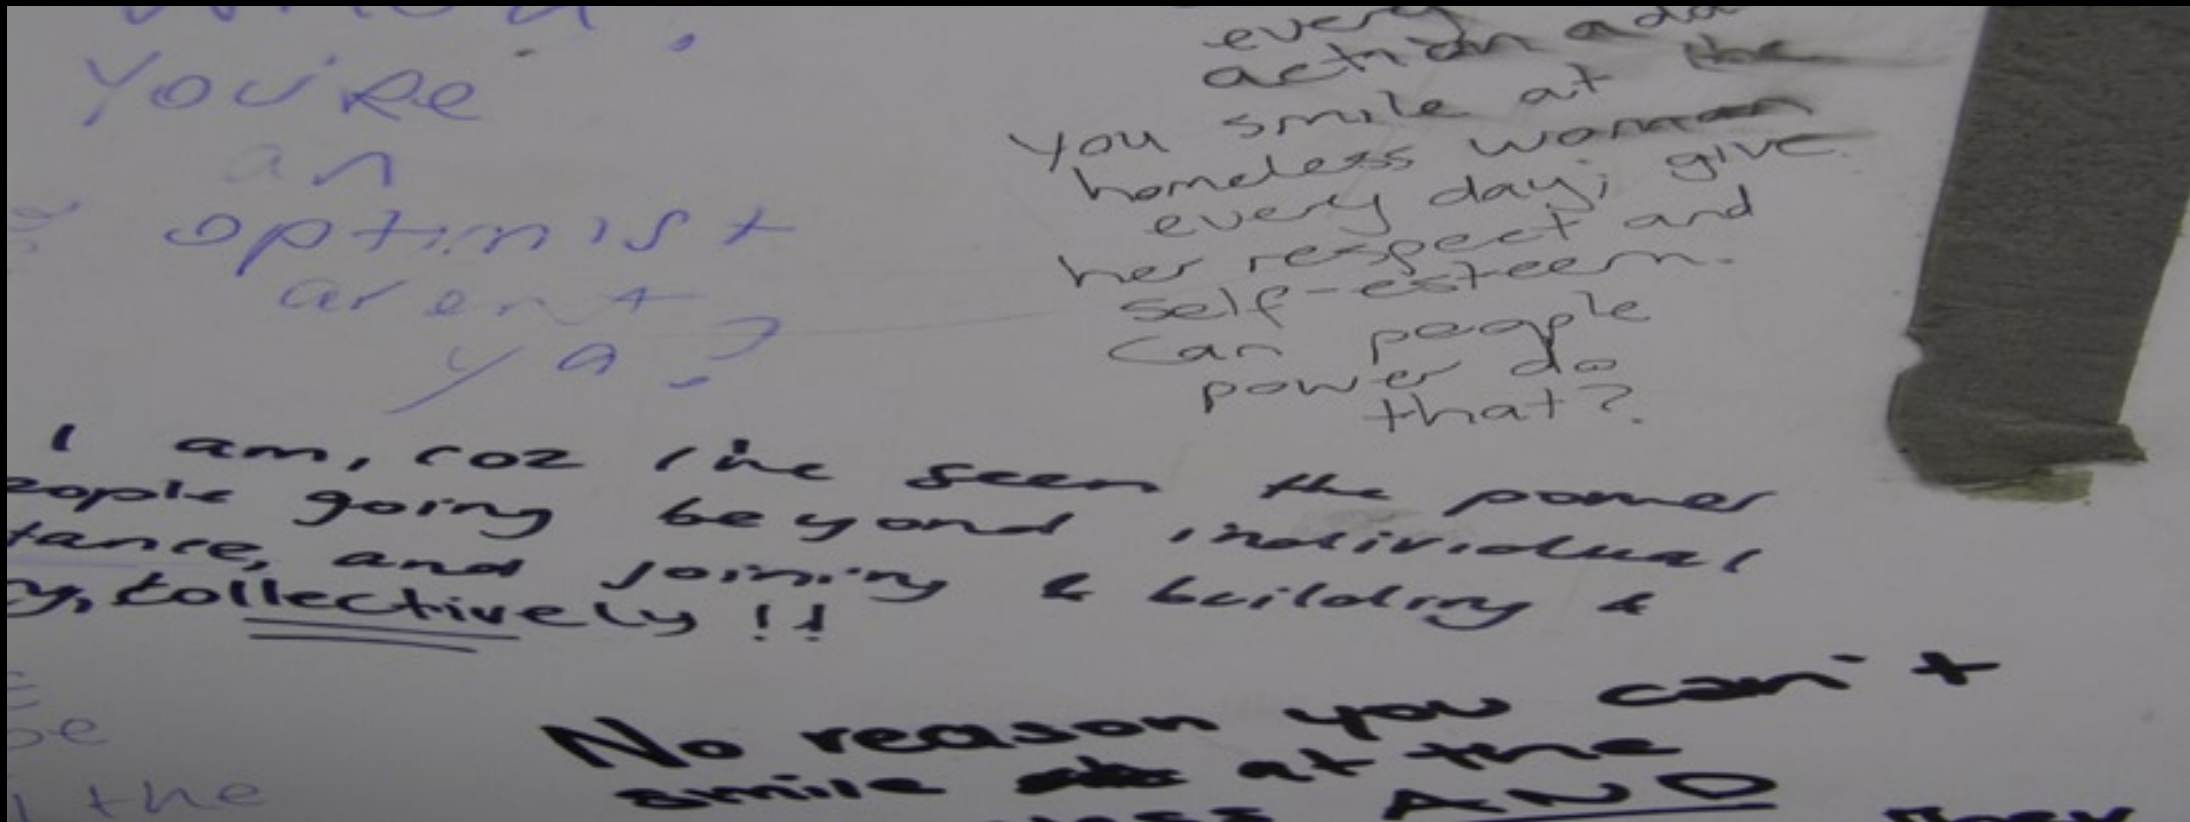 You're
an
optimist
arent
ya?
every
action add
You smile at the
homeless woman
every day; give
her respect and
self-esteem.
Can people
power do
that?
I am, coz I've seen the power
going beyond individual
and joining & building &
collectively!!
No reason you can't
smile at the
AND they
be
the